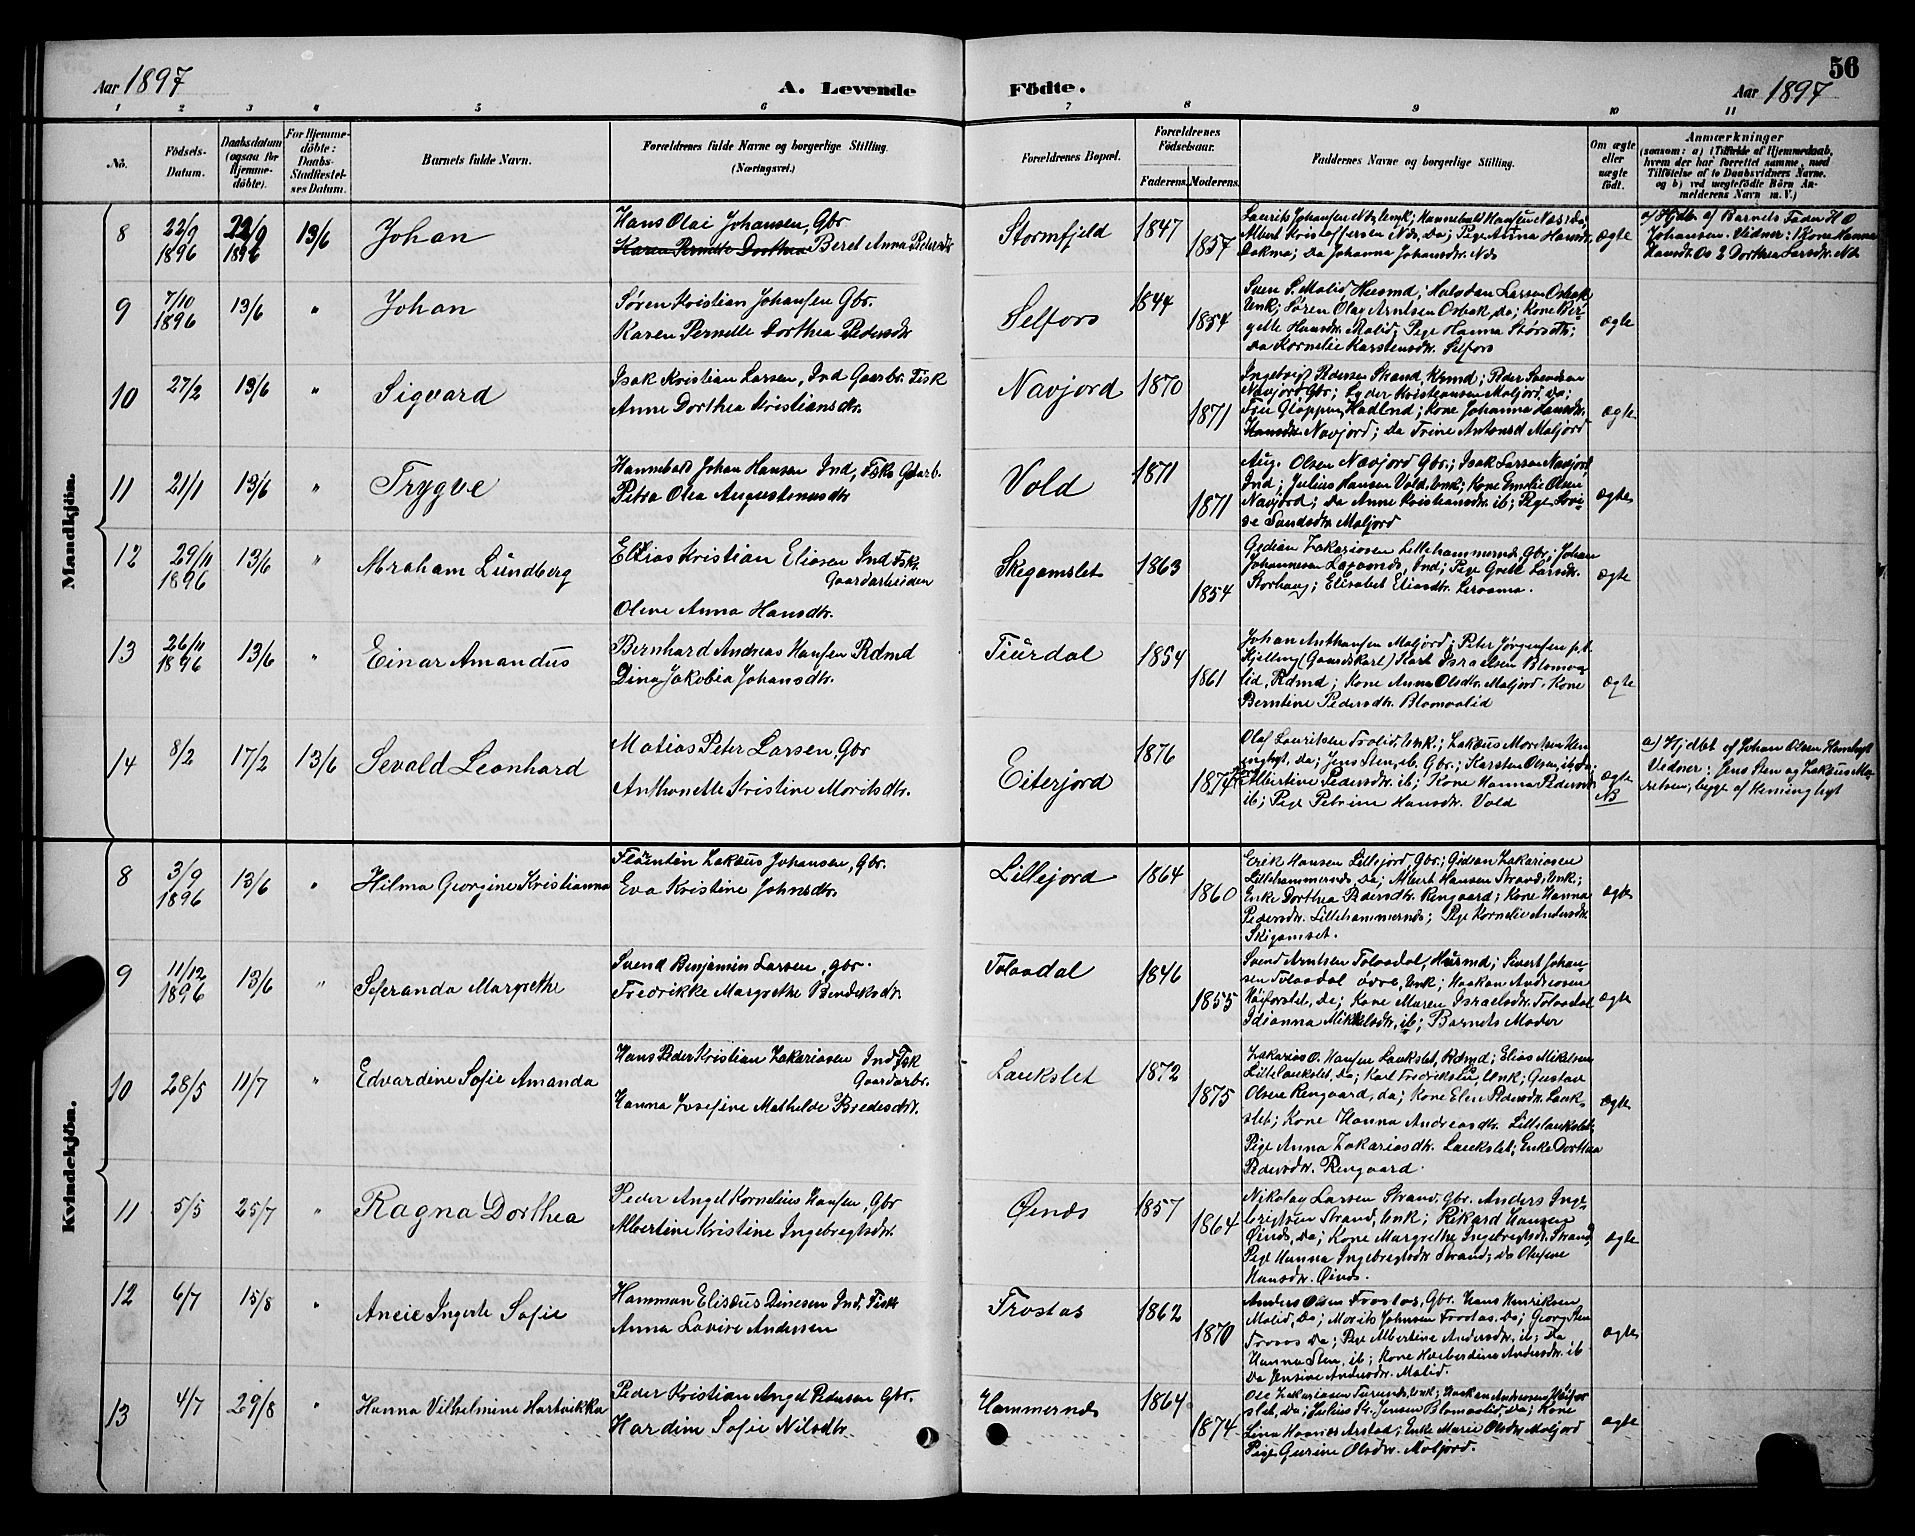 56
Aar 1897
A. Levende
Födte.
Aar 1897
1 2 3 4 5 6 7 8 9 10 11
No.
Födsels-Datum.
Daabsdatum (ogsaa for Hjemme-döbte).
For Hjemme-döbte: Daabs-Stadfæstel-ses Datum.
Barnets fulde Navn.
Forældrenes fulde Navne og borgerlige Stilling. (Næringsvei.)
Forældrenes Bopæl.
Forældrenes Födselsaar.
Faderens. Moderens.
Faddernes Navne og borgerlige Stilling.
Om ægte eller uægte födt.
Anmærkninger
(saasom: a) i Tilfælde af Hjemmedaab, hvem der har forrettet samme, med Tilföielse af to Daabsvidners Navne, og b) ved uægtefödte Börn An-melderens Navn m. V.)
Mandkjön.
8 22/9 1896 22/9 1896 13/6 Johan
Hans Olai Johansen, Gbr
Karen Pernelle Dorthea Beret Anna Pedersdr
Stormfjeld 1847 1857
Laurits Johansen Nds, Unk; Hannibald Hansen Nds, Da;
Albert Kristoffersen Nds, Da; Pige Anna Hansdr.
Dakmo; Da Johanna Johansdr. Nds
ægte
a) Hjdbt. af Barnets Fader H O
Johansen. Vidner: Kone Hanna
Hansdr. Os & Dorthea Larsdr. Nds
9 7/10 1896 13/6 " Johan
Søren Kristian Johansen Gbr.
Karen Pernelle Dorthea Pedersdr
Selfors 1844 1854
Sven S. Molid Husmd; Halvdan Larsen Osbak
Unk; Søren Olai Arntsen Osbak, Da; Kone Ber-
gitte Hansdr. Molid; Pige Hanna
Da Kornelie Karstensdr. Selfors
ægte
10 27/2 13/6 " Sigvard
Isak Kristian Larsen, Ind Gaarbr. Fisk
Anne Dorthea Kristiansdr.
Navjord 1870 1871
Ingebrigt Pedersen Strand, Krmd; Peder Svendsen
Navjord Gbr; Peder Kristiansen Moljord, Da;
Hadlnd; Kone Johanna Hansdr.
Hansdr. Navjord; Da Trine Antonsd Moljord
ægte
11 21/1 13/6 " Trygve
Hannibald Johan Hansen Ind, Fisk. Gdarb.
Petra Olea Augustinusdr
Vold 1871 1871
Aug. Olsen Navjord Gbr.; Isak Larsen Navjord
Ind; Julius Hansen Vold, Unk; Kone Emilie Olsen
Navjord; Da Anne Kristiansdr. ib; Pige Lovi-
se Moljord
ægte
12 29/11 1896 13/6 " Abraham Lundberg
Elias Kristian Eliasen Ind Fsk.
Gaardarbeider
Oline Anna Hansdr.
Skegamslet 1863 1854
Gidian Zakariasen Lillehammernds, Gbr; Johan
Johannesen Ind; Pige Larsdr.
Storhaug; Elisabet Eliasdr.
ægte
13 26/11 1896 13/6 " Einar Amandus
Bernhard Andreas Hansen Rdmd
Dina Jakobia Johansdr.
Tiurdal 1854 1861
Johan Anthonsen Moljord; Peter Jørgensen p.t.
Kjelling (Gaardskarl) Israelsen Blomvas-
lid, Rdmd; Kone Anna Olsdr. Moljord. Kone
Berntine Pedersdr. Blomvaslid
ægte
14 8/2 17/2 13/6 Sevald Leonhard
Matias Peter Larsen, Gbr
Anthonette Kristine Moritsdr.
Eiterjord 1876 1874
Olaf Lauritsen Trolid, Unk.; Zakæus Moritsen Hem-
inghyt, Da; Jens Sten, ib, Gbr; Karsten Olsen, ib, Da.
Albertine Pedersdr. ib; Kone Hanna Pedersdr.
ib; Pige Petrine Hansdr. Vold
ægte NB
a) Hjdbt af Johan Olsen Heminghyt
Vidner: Jens Sten og Zakæus Mo-
ritsen, begge af Heminghyt
Kvindekjön.
8 3/9 1896 13/6 " Hilma Georgine Kristianna
Florentin Zakæus Johansen, Gbr.
Eva Kristine Johnsdr.
Lillejord 1864 1860
Erik Hansen Lillejord, Gbr; Gidian Zakariasen
Lillehammernds, Da; Albert Hansen Strand, Unk;
Enke Dorthea Pedersdr. Rengaard; Kone Hanna
Pedersdr. Lillehammernds; Pige Kornelie Andersdr.
Skigamset.
ægte
9 11/12 1896 13/6 " Seferanda Margrethe
Svend Benjamin Larsen, gbr.
Fredrikke Margrethe Bendiksdr.
Tolaadal 1846 1855
Svend Arntsen Tolaadal, Husmd; Sivert Johan-
sen Tolaadal övre, Unk; Haakan Andreasen
Höiforslet, Da; Kone Maren Israelsdr. Tolaadal
Idianna Mikkelsdr, ib; Barnets Moder
ægte
10 28/5 11/7 " Edvardine Sofie Amanda
Hans Peder Kristian Zakariasen Ind Fsk
Gaardarbr.
Hanna Josefine Mathilde Bredesdr.
Laukslet 1872 1875
Zakarias O. Hansen Laukslet, Rdmd; Elias Mikelsen
Lillelaukslet, Da; Karl Fredriksen, Unk; Gustav
Olsen Rengaard, da; Kone Elen Pedersdr. Lauk-
slet; Kone Hanna Andreasdr. Lillelaukslet;
Pige Anna Zakariasdr. Laukslet; Enke Dorthea
Pedersdr. Rengaard.
ægte
11 5/5 25/7 " Ragna Dorthea
Peder Angel Kornelius Hansen, Gbr
Albertine Kristine Ingebregtsdr.
Øinds 1857 1864
Nikolay Larsen Strand, Gbr. Anders Inge-
brigtsen Strand, Unk; Rikard Hansen
Øinds, Da; Kone Margrethe Ingebregtsdr. Strand
Pige Hanna Ingebregtsdr Strand; Da Olufine
Hansdr. Øinds.
ægte
12 6/7 15/8 " Aneie Ingerte Sofie
Hammon Elisæus Dinesen Ind. Fisk
Anna Lovise Andersen
Trostas 1862 1870
Anders Olsen Trostas, Gbr. Hans Henriksen
Molid, Da; Morits Johnsen Trostas, Da; Georg Sten
Da; Pige Albertine Andersdr, ib; Da
Hanna Sten, ib; Kone Andersdr. ib
Da Jensine Andersdr. Molid.
ægte
13 4/7 29/8 " Hanna Vilhelmine Hartvikka
Peder Kristian Angel Pedersen Gbr.
Hardine Sofie Nilsdtr
Hammernds 1864 1874
Ole Zakariasen Unk; Haakan Andreasen Höifor-
slet, Da; Julius Kr. Jensen Blomaslid, Da; Kone
Lina Arstad; Enke Marie Olsdr. Moljord
Pige Gurine Olsdr. Moljord.
ægte